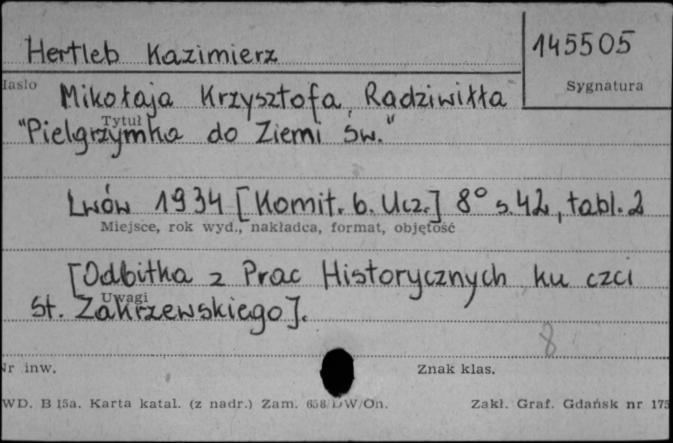 Hertleb Kazimierz
145505
Hasło
Sygnatura
Mikołaja Krzysztofa Radziwiłła
Tytuł
"Pielgrzymka do Ziemi Św."
Lwów 1934 [Komit. b. Ucz.] 8° s. 42, tabl. 2
Miejsce, rok wyd., nakładca, format, objętość
[Odbitka z Prac Historycznych ku czci
Uwagi
St. Zakrzewskiego].
8
Nr inw.
Znak klas.
WD. B 15a. Karta katal. (z nadr.) Zam. 658/DW/On.
Zakł. Graf. Gdańsk nr 175